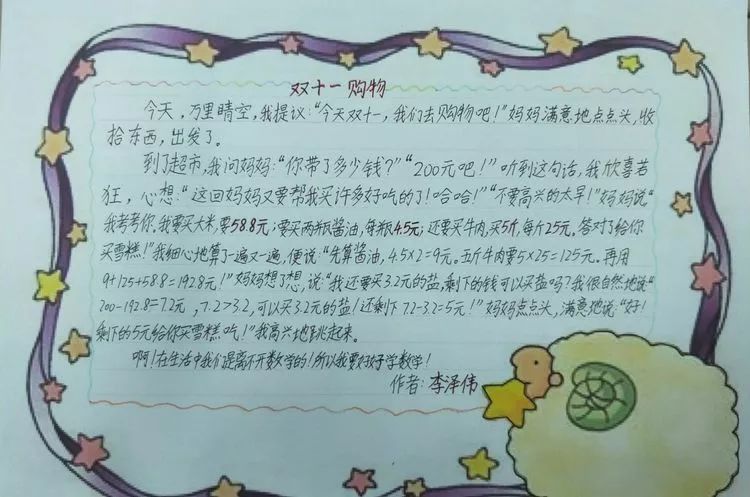 双十一购物
今天，万里晴空，我提议：“今天双十一，我们去购物吧！”妈妈满意地点点头，收
拾东西，出发了。
到了超市，我问妈妈：“你带了多少钱？”“200元吧！”听到这句话，我欣喜若
狂，心想：“这回妈妈又要帮我买许多好吃的了！哈哈！”“不要高兴的太早！”妈妈说“
我考考你，我要买大米，要58.8元；要买两瓶酱油，每瓶4.5元；还要买牛肉，买5斤，每斤25元。答对了给你
买雪糕！”我细心地算了一遍又一遍，便说：“先算酱油，4.5×2=9元。五斤牛肉要5×25=125元。再用
9+125+58.8=192.8元！”妈妈想了想，说：“我还要买3.2元的盐，剩下的钱可以买盐吗？我很自然地说“
200-192.8=7.2元，7.2>3.2，可以买3.2元的盐！还剩下7.2-3.2=5元！”妈妈点点头，满意地说：“好！
剩下的5元给你买雪糕吃！”我高兴地跳起来。
啊！在生活中我们是离不开数学的！所以我要好好学数学！
作者：李泽伟